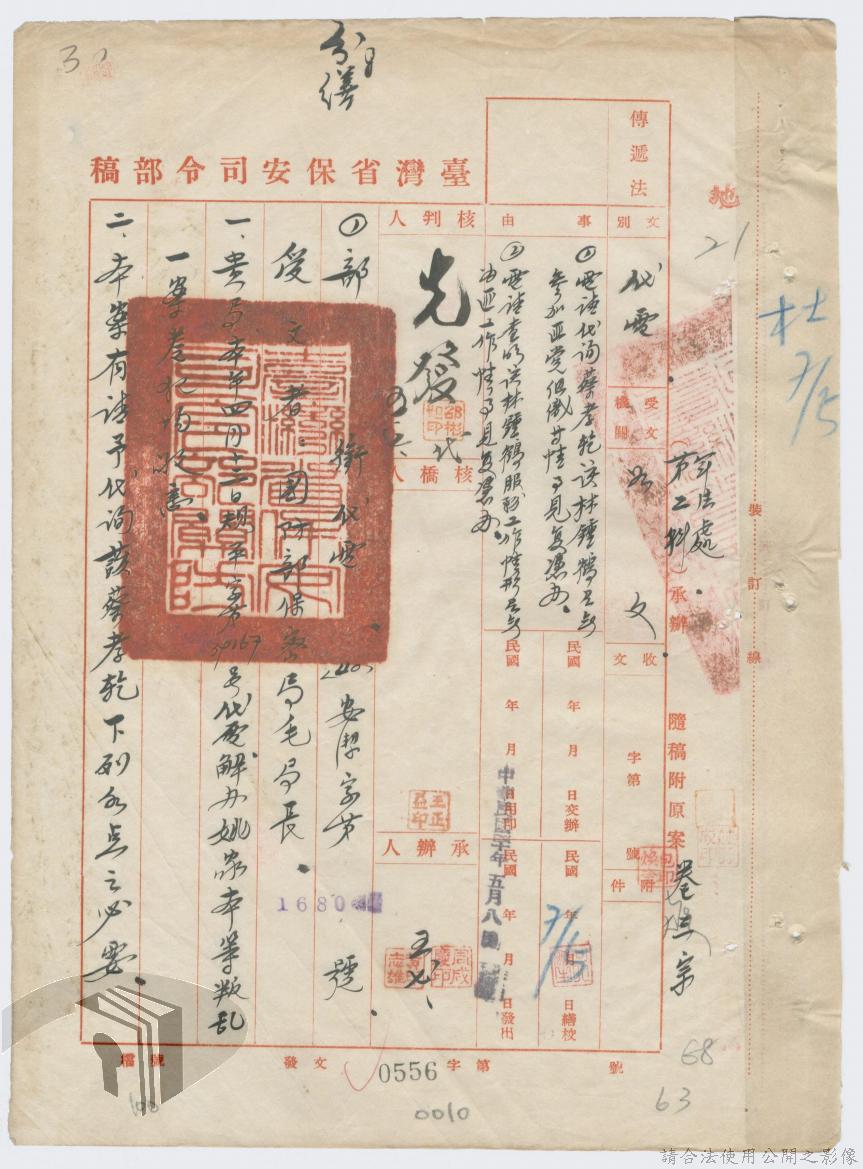 臺灣省保安司令部稿
傳遞法
文別
代電
受文機關
如文
事由
①電請代詢蔡孝乾該林鍾鶴是否
參加匪黨組織等情形見复憑办。
②電請查明洪林鍾鶴服務工作情形是否
為匪工作情形見复憑办。
核判人
先發
代
核橋人
承辦人
收文
字第
號
附件
民國 年 月 日交辦
民國 年 月 日繕校
中華民國四十年五月八日
民國 年 月 日發出
7/5
軍法處
第二科
承辦
隨稿附原案
卷 宗
①部 銜代電 安潔字第 號
1680
受文者：國防部保密局毛局長。
一、貴局本年四月十三日 字第 號代電解办姚家本等叛乱
一案卷犯均收悉。
二、本案有請予代詢該蔡孝乾下列各点之必要。
裝訂線
杜
7/5
21
發文
字第0556號
檔號
0010
68
63
請合法使用公開之影像